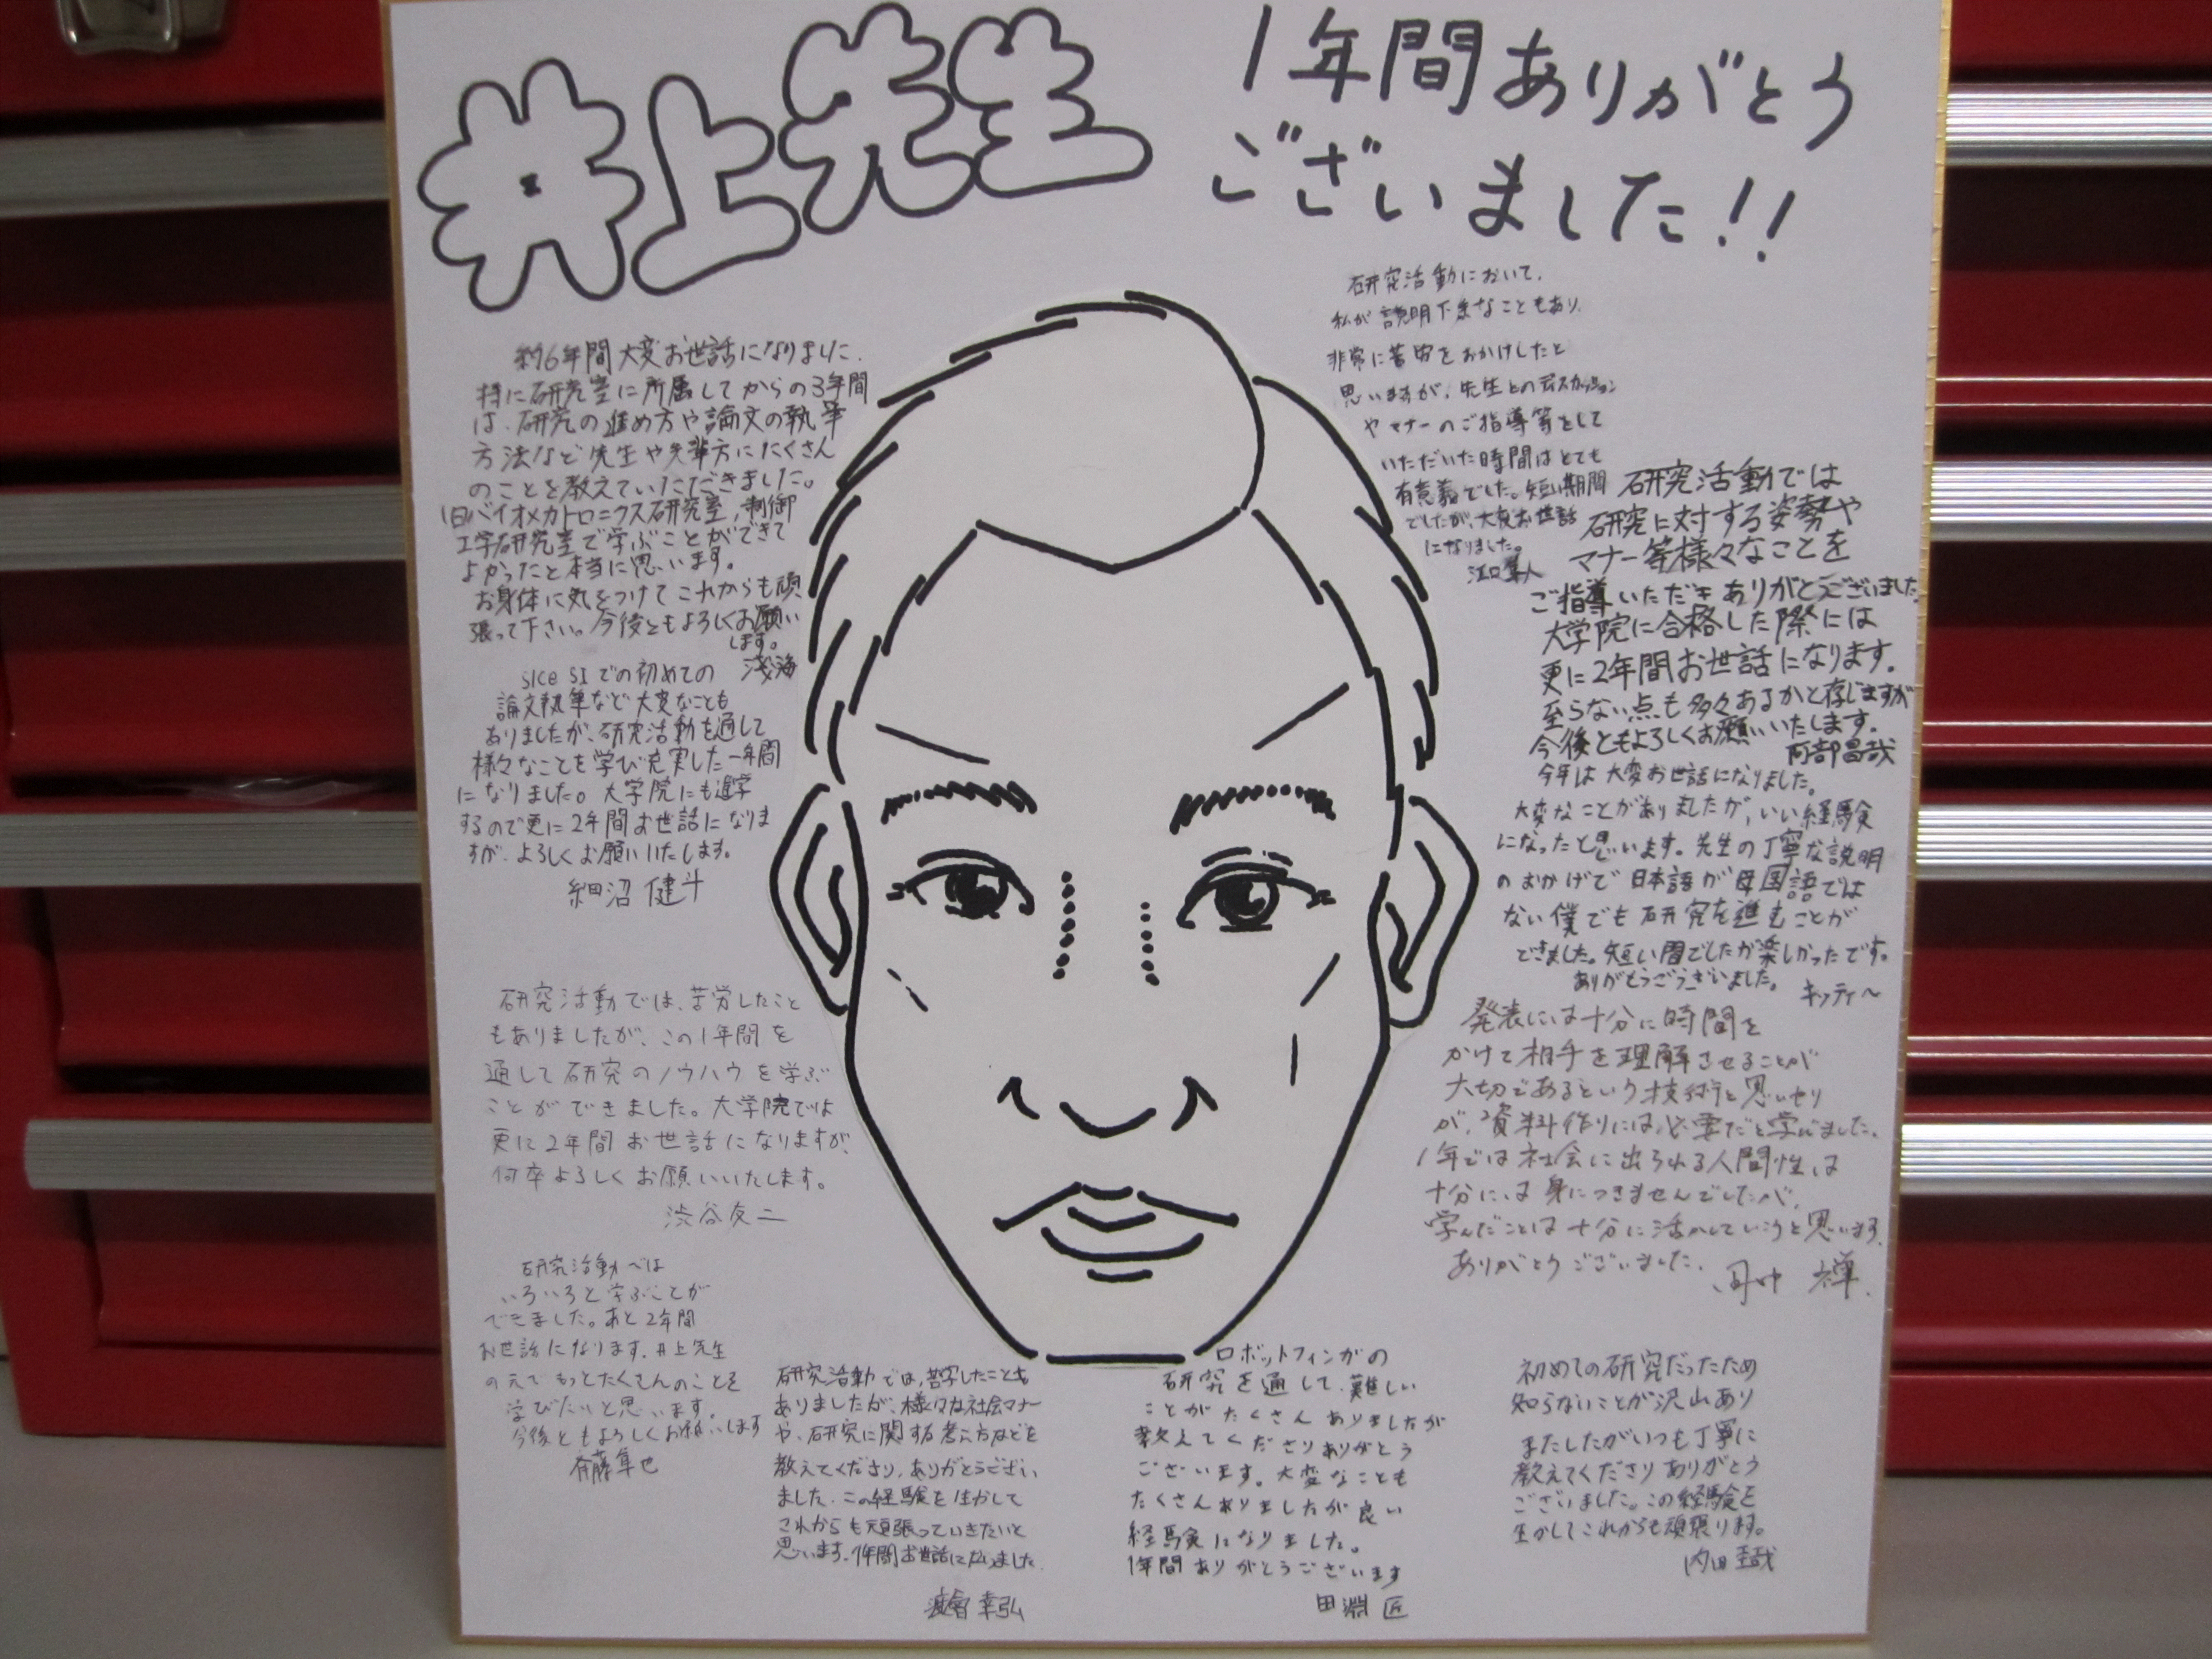 井上先生
1年間ありがとう
ございました!!
約6年間大変お世話になりました.
特に研究室に所属してからの3年間
は、研究の進め方や論文の執筆
方法など先生や先輩方にたくさん
のことを教えていただきました。
旧バイオメカトロニクス研究室,制御
工学研究室で学ぶことができて
よかったと本当に思います。
お身体に気をつけてこれからも頑
張って下さい。今後ともよろしくお願い
します。
浅海
SICE SIでの初めての
論文執筆など大変なことも
ありましたが、研究活動を通して
様々なことを学び充実した一年間
になりました。大学院にも進学
するので更に2年間お世話になりま
すが、よろしくお願いいたします。
細沼 健斗
研究活動では、苦労したこと
もありましたが、この1年間を
通して研究のノウハウを学ぶ
ことができました。大学院では
更に2年間お世話になりますが、
何卒よろしくお願いいたします。
渋谷友二
研究活動では
いろいろと学ぶことが
できました。あと2年間
お世話になります。井上先生
の元でもっとたくさんのことを
学びたいと思います。
今後ともよろしくお願いします
斉藤隼也
研究活動では,苦労したことも
ありましたが、様々な社会マナー
や、研究に関する考え方などを
教えてくださり,ありがとうござい
ました.この経験を生かして
これからも頑張っていきたいと
思います.1年間お世話になりました.
渡會幸弘
ロボットフィンガの
研究を通して、難しい
ことがたくさんありましたが
教えてくださりありがとう
ございます。大変なことも
たくさんありましたが良い
経験になりました。
1年間ありがとうございます
田淵 匠
研究活動において、
私が説明下手なこともあり、
非常に苦労をおかけしたと
思いますが、先生とのディスカッション
やマナーのご指導等をして
いただいた時間はとても
有意義でした。短い期間
でしたが、大変お世話
になりました。
江口
研究活動では
研究に対する姿勢や
マナー等様々なことを
ご指導いただきありがとうございました。
大学院に合格した際には
更に2年間お世話になります。
至らない点も多々あるかと存じますが
今後ともよろしくお願いいたします。
阿部昌哉
今年は大変お世話になりました。
大変なことがありましたが,いい経験
になったと思います。先生の丁寧な説明
のおかげで日本語が母国語では
ない僕でも研究を進むことが
できました。短い間でしたが楽しかったです。
ありがとうごうざいました。
キッティ〜
発表には十分に時間を
かけて相手を理解させることが
大切であるという技術と思いやり
が、資料作りには必要だと学びました。
1年では社会に出られる人間性は
十分には身につきませんでしたが、
学んだことは十分に活かしていこうと思います。
ありがとうございました。
初めての研究だったため
知らないことが沢山あり
ましたがいつも丁寧に
教えてくださりありがとう
ございました。この経験を
生かしてこれからも頑張ります。
内田圭哉